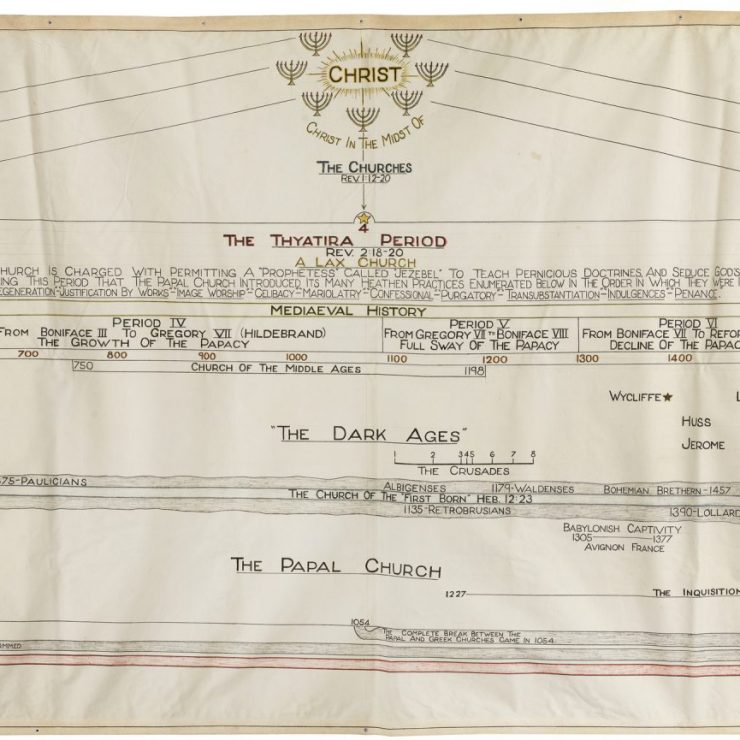 CHRIST
CHRIST IN THE MIDST OF
THE CHURCHES
REV. 1:12-20
4
THE THYATIRA PERIOD
REV. 2:18-20
A LAX CHURCH
CHURCH IS CHARGED WITH PERMITTING A "PROPHETESS" CALLED "JEZEBEL" TO TEACH PERNICIOUS DOCTRINES, AND SEDUCE GOD'S
ING THIS PERIOD THAT THE PAPAL CHURCH INTRODUCED ITS MANY HEATHEN PRACTICES ENUMERATED BELOW IN THE ORDER IN WHICH THEY WERE
EGENERATION-JUSTIFICATION BY WORKS-IMAGE WORSHIP-CELIBACY-MARIOLATRY-CONFESSIONAL-PURGATORY-TRANSUBSTANTIATION-INDULGENCES-PENANCE.
MEDIAEVAL HISTORY
PERIOD IV
FROM BONIFACE III TO GREGORY VII (HILDEBRAND)
THE GROWTH OF THE PAPACY
PERIOD V
FROM GREGORY VII TO BONIFACE VIII
FULL SWAY OF THE PAPACY
PERIOD VI
FROM BONIFACE VII TO REFOR
DECLINE OF THE PAPAC
700 800 900 1000 1100 1200 1300 1400
750 CHURCH OF THE MIDDLE AGES 1198
WYCLIFFE
HUSS
JEROME
"THE DARK AGES"
1 2 3 4 5 6 7 8
THE CRUSADES
675-PAULICIANS
ALBIGENSES 1179-WALDENSES BOHEMIAN BRETHERN-1457
THE CHURCH OF THE "FIRST BORN" HEB. 12:23
1135-RETROBRUSIANS 1390-LOLLARD
BABYLONISH CAPTIVITY
1305 1377
AVIGNON FRANCE
THE PAPAL CHURCH
1227 THE INQUISITION
1054
THE COMPLETE BREAK BETWEEN THE
PAPAL AND GREEK CHURCHES CAME IN 1054
AMMED